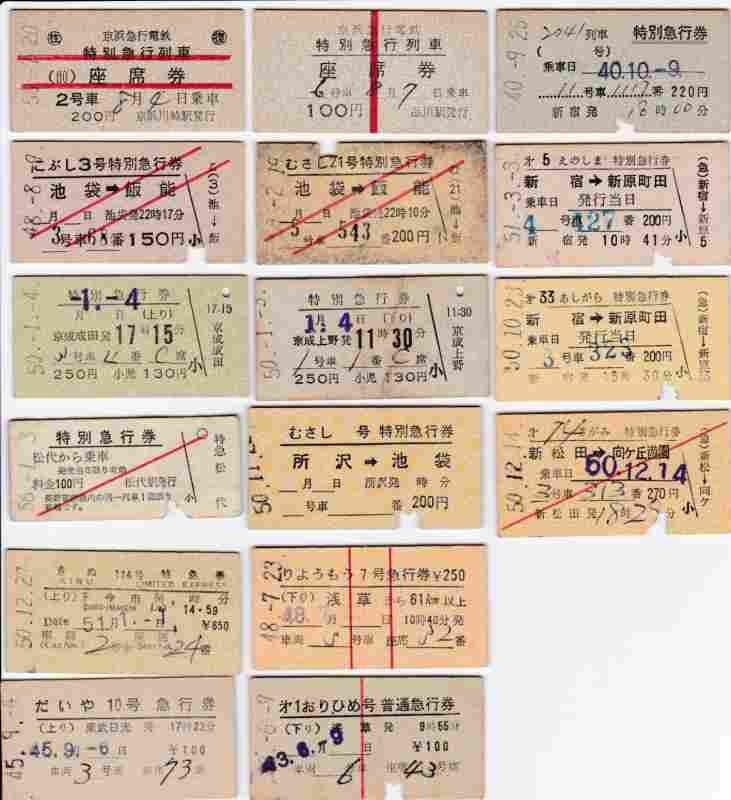 京浜急行電鉄
特別急行列車
(前) 座席券
2号車 8月4日乗車
200円 京浜川崎駅発行
京浜急行電鉄
特別急行列車
座席券
6号車 8月7日乗車
100円 品川駅発行
40.-9.26
2041列車 特別急行券
( 号)
乗車日 40.10.-9.
11号車 111番 220円
新宿発 18時00分
48.-8.-9
むさし3号特別急行券
池袋➡飯能
月 日 池袋発22時17分
3号車 番150円 小
(3)池→飯
むさし21号特別急行券
池袋➡飯能
月 日 池袋発22時10分
5号車 543番 200円 小
21
51.-3.-3
オ 5 えのしま 特別急行券
新宿➡新原町田
乗車日 発行当日
4号車 427番 200円
新宿発10時41分 小
(急)新宿→新原 5
50.-1.-4
特別急行券
-1.-4
月 日 (上り)
京成成田発17時15分
号車 番C席
250円 小児130円 小
17-15
京成成田
50.-1.-3
特別急行券
1.4
月 日 (下り)
京成上野発11時30分
1号車 1番C席
250円 小児130円 小
11-30
京成上野
50.10.23
オ 33 あしがら 特別急行券
新宿➡新原町田
乗車日 発行当日
3号車 323 番200円
新宿発 15時30分 小
(急)新宿→新原
56.-1.-3
特別急行券
松代から乗車
発売当日限り有効
料金100円 松代駅発行
小
特急松代
50.11.
むさし 号 特別急行券
所沢➡池袋
月 日 所沢発 時 分
号車 番 200円
50.12.14
オ 74 さがみ 特別急行券
新松田➡向ケ丘遊園
乗車日 50.12.14
3号車 313番270円
新松田発18時2 分 小
(急)新松→向ケ
50.12.27
きぬ 114号 特急券
KINU LIMITED EXPRESS
(上り) 下今市発 時 分
14-59
Date 51月1.-1日 ¥650
(Car No.) 2号車 24番
48.-7.23
りょうもう7号急行券¥250
(下り) 浅草から61km以上
48. 月 日 10時40分発
車両 5号車 座席 32番
45.9.
だいや 10号 急行券
(上り) 東武日光発 17時23分
45.9.-6日 ¥100
車両 3号車 座席 73番
オ1おりひめ号 普通急行券
(下り) 浅草発 9時55分
43.6.-9日 ¥100
車両 6号車 座席 43番